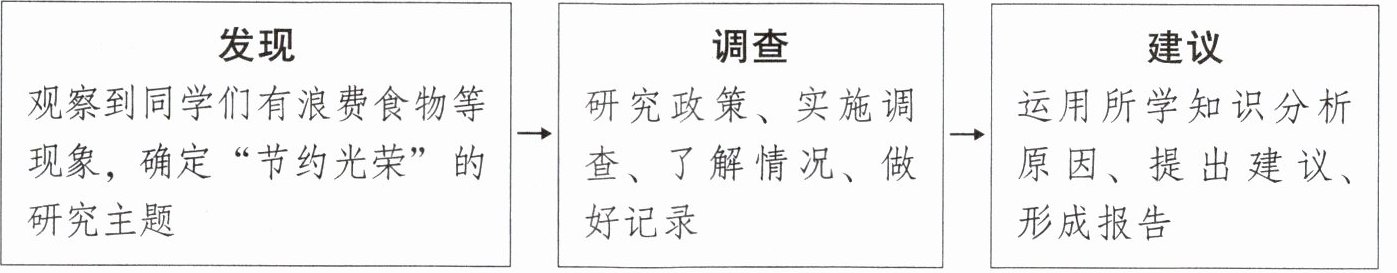 发现
观察到同学们有浪费食物等
现象，确定“节约光荣”的
研究主题
调查
研究政策、实施调
查、了解情况、做
好记录
建议
运用所学知识分析
原因、提出建议、
形成报告